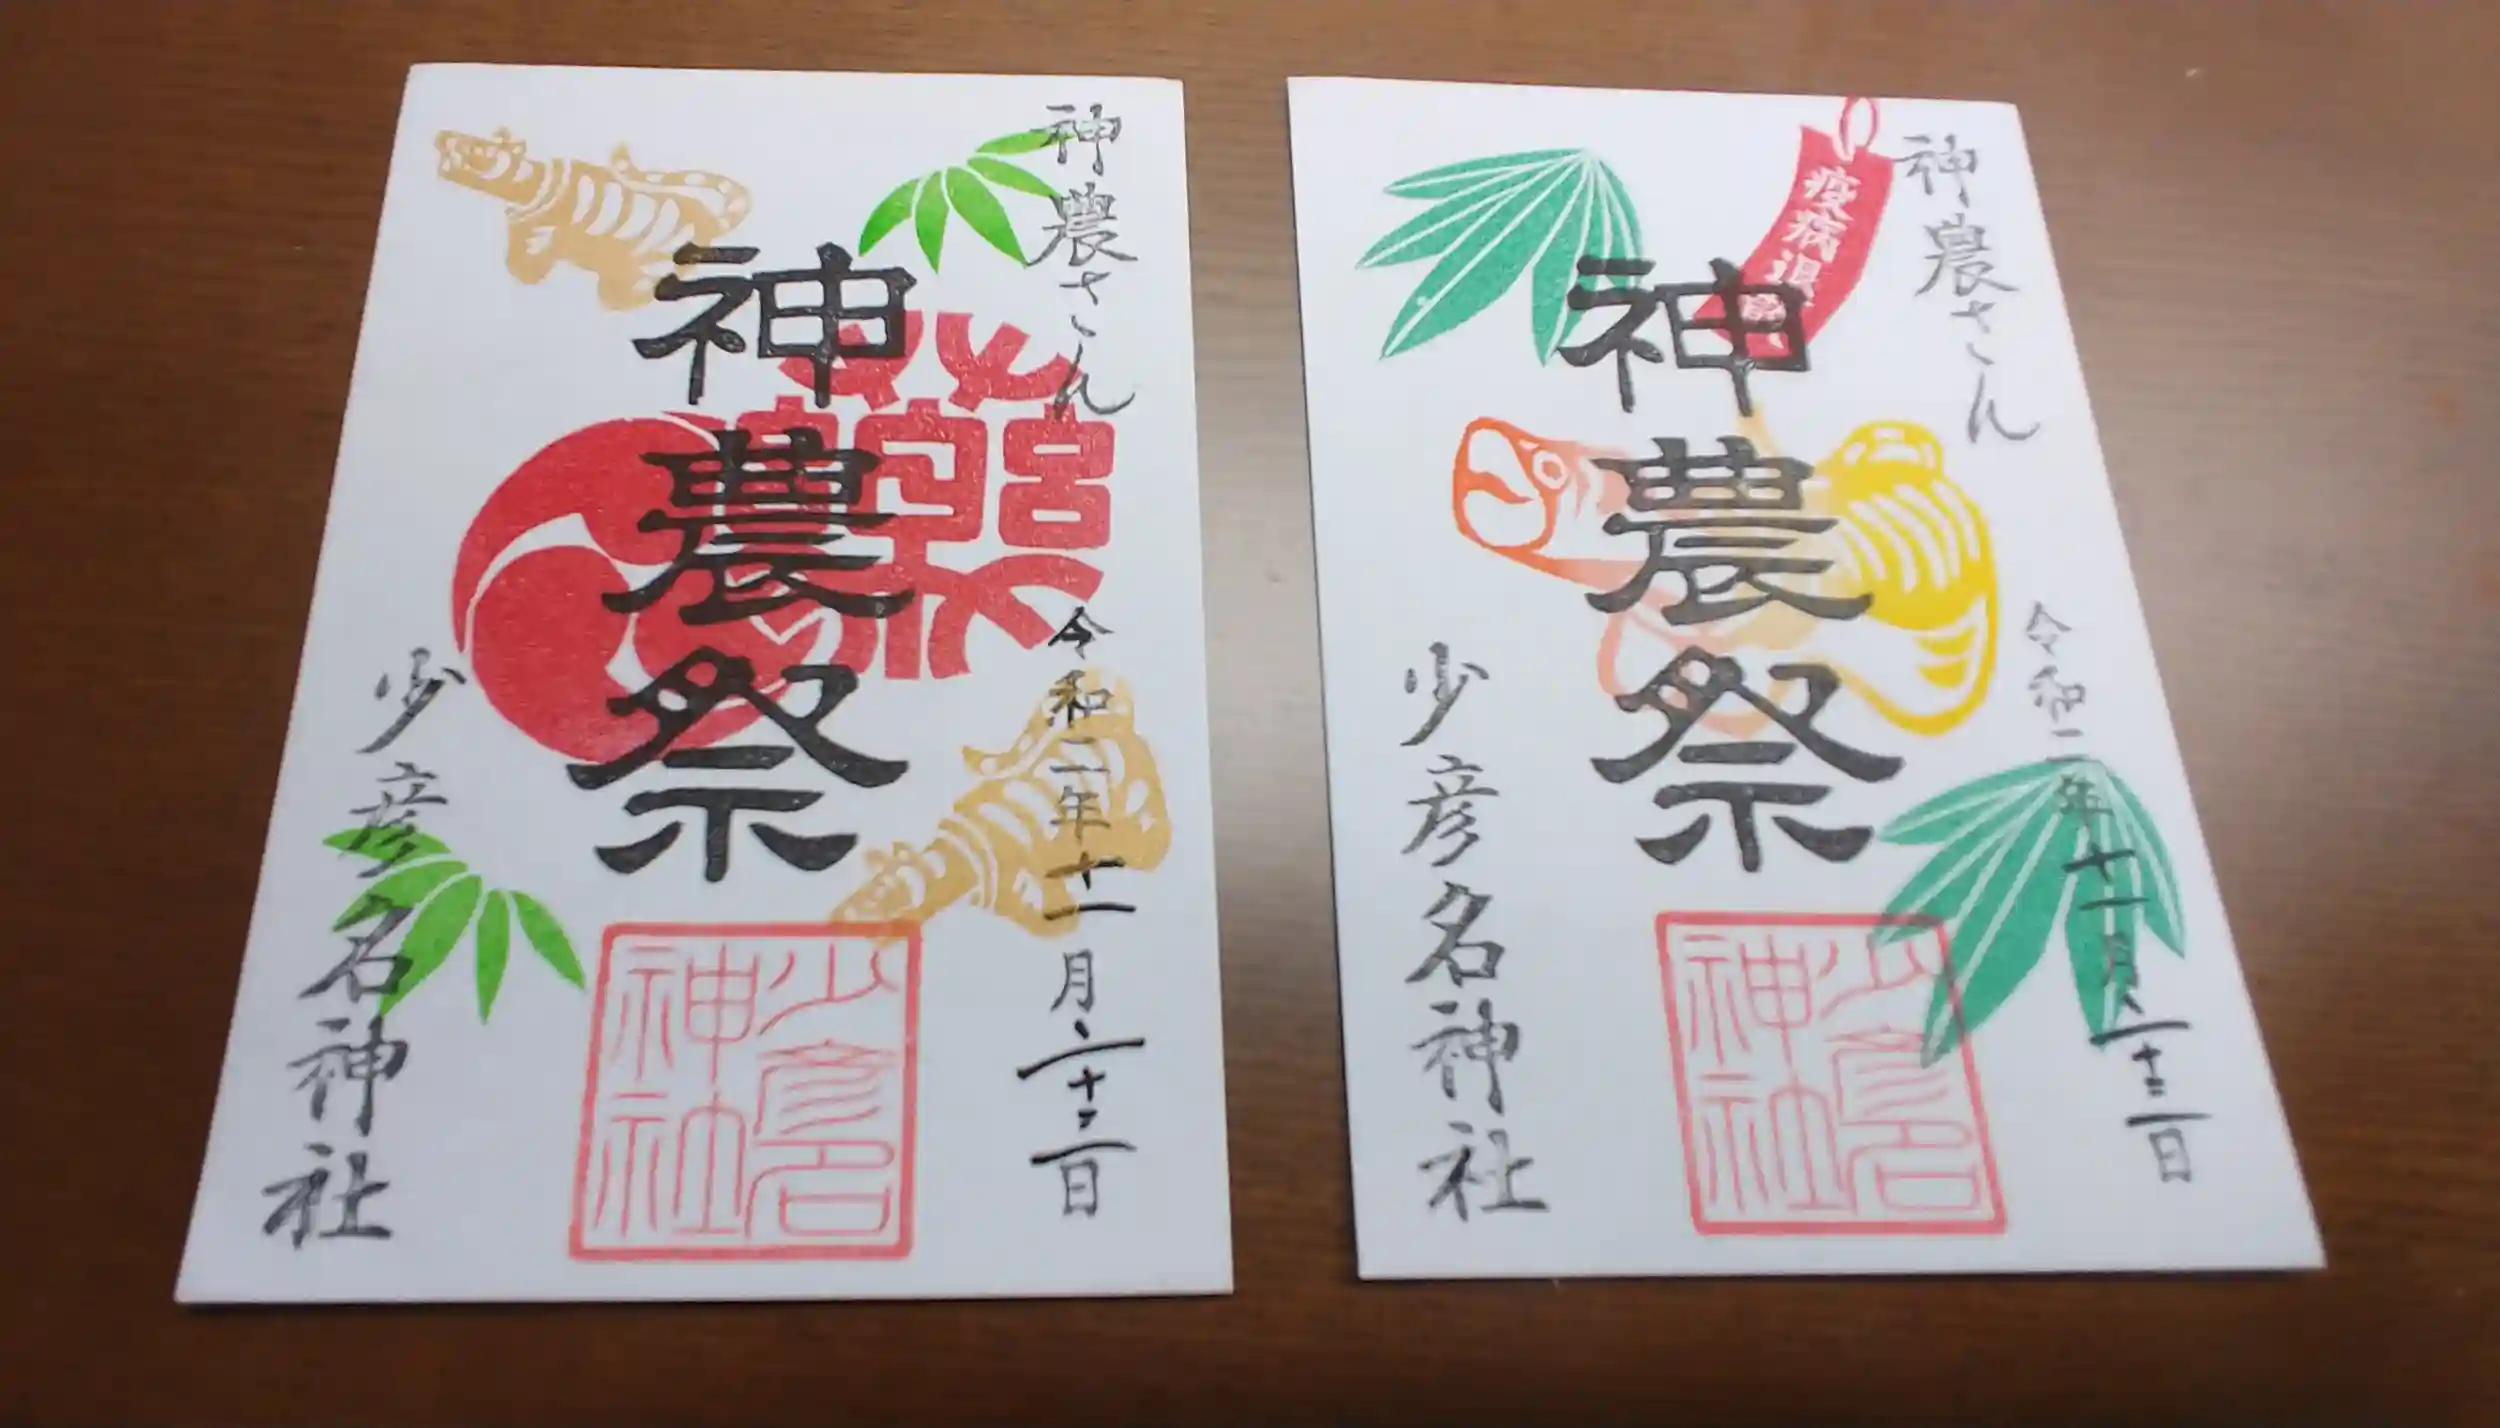 神農さん
令和二年十一月二十二日
薬
神農祭
少彦名
神社
少彦名神社
神農さん
令和二年十一月二十三日
疫病退散
神農祭
少彦名
神社
少彦名神社